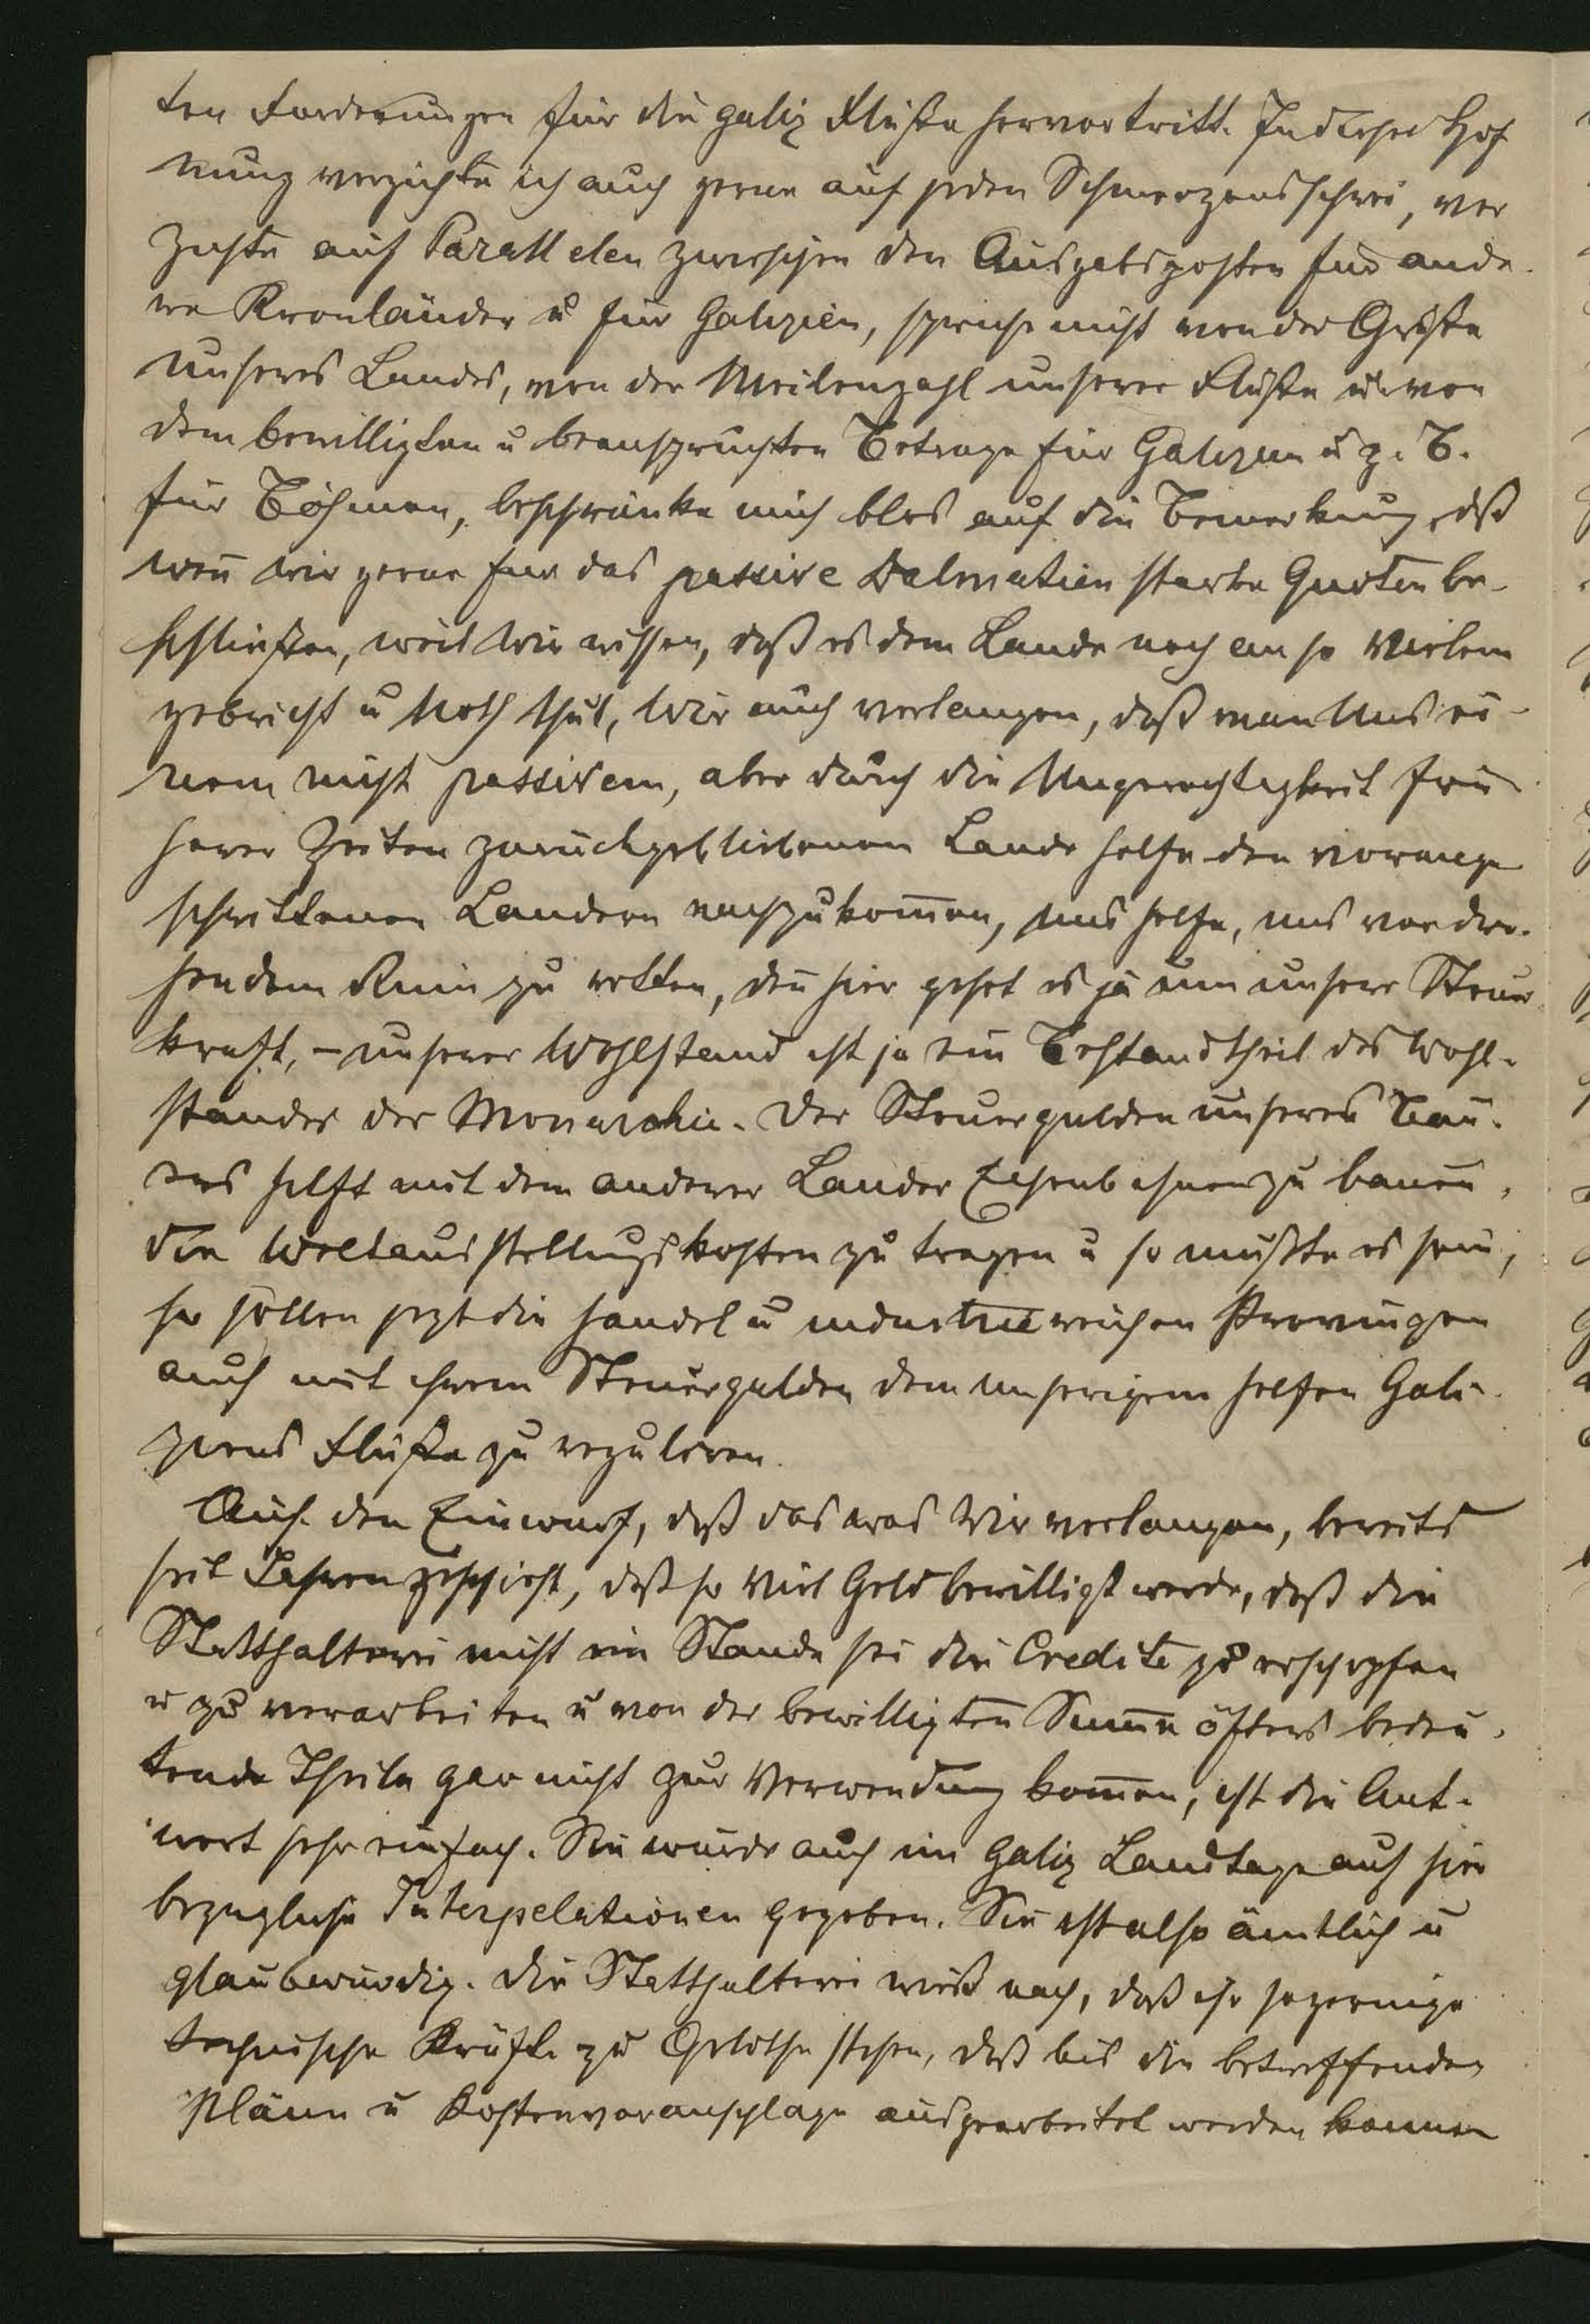 ten Forderungen für die galiz Flüße hervortritt. In dieser Hof
nung verzichte ich auch gerne auf jeden Schmerzensschrei, ver
zichte auf Parallelen zwischen den Ausgabsposten für ande-
re Kronländer u für Galizien, spreche nicht von der Größe
unseres Landes, von der Meilenzahl unserer Flüße u von
dem bewilligten u beanspruchten Betrage für Galizien u z. B.
für Böhmen, beschränke mich blos auf die Bemerkung, dß
wen̄ wir gerne für das passive Dalmatien starke Quoten be-
schließen, weil wir wissen, daß es dem Lande noch an so Vielem
gebricht u Noth thut, wir auch verlangen, daß man uns ei-
nem nicht passivem, aber durch die Ungerechtigkeit frü
herer Zeiten zurückgebliebenen Lande helfe den vorange
schrittenen Landern nachzukom̄en, uns helfe, uns vor dro-
hendem Ruin zu retten, den̄ hier gehet es ja um unsere Steuer
kraft, – unserer Wohlstand ist ja ein Bestandtheil des Wohl-
standes der Monarchie. Der Steuergulden unseres Bau-
ers hilft mit dem anderer Lander Eisenbahnen zu bauen,
die Weltausstellungskosten zu tragen u so mußte es sein,
so sollen jezt die handel u industriereichen Provinzen
auch mit ihrem Steuergulden dem unserigem helfen Gali-
ziens Flüße zu reguliren.
Auf den Einwurf, daß das was wir verlangen, bereits
seit Jahren geschieht, daß so viel Geld bewilligt werde, daß die
Statthalterei nicht im Stande sei die Credite zu erschopfen
u zu verarbeiten u von der bewilligten Sum̄e öfters bedeu-
tende Theile gar nicht zur Verwendung kom̄en, ist die Ant-
wort sehr einfach. Sie wurde auch im galiz Landtage auf hie
bezugliche Interpelationen gegeben. Sie ist also ämtlich u
glaubwürdig. Die Statthalterei wieß nach, daß ihr so geringe
technische Kräfte zu Gebothe stehen, daß bis die betreffenden
Pläne u Kostenvoranschlage ausgearbeitet werden konnen